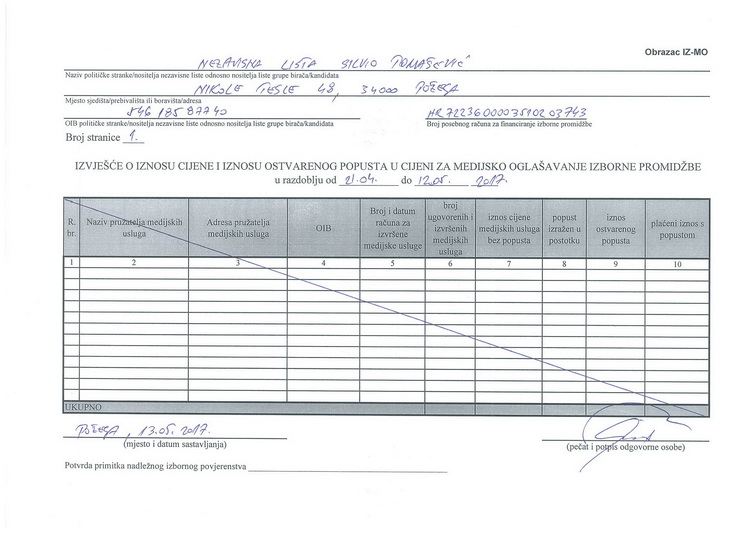 Obrazac IZ-MO
NEZAVISNA LISTA SILVIO TOMAŠEVIĆ
Naziv političke stranke/nositelja nezavisne liste odnosno nositelja liste grupe birača/kandidata
NIKOLE TESLE 48, 34000 POŽEGA
Mjesto sjedišta/prebivališta ili boravišta/adresa
84618587740 HR7223600003510203743
OIB političke stranke/nositelja nezavisne liste odnosno nositelja liste grupe birača/kandidata Broj posebnog računa za financiranje izborne promidžbe
Broj stranice 1.
IZVJEŠĆE O IZNOSU CIJENE I IZNOSU OSTVARENOG POPUSTA U CIJENI ZA MEDIJSKO OGLAŠAVANJE IZBORNE PROMIDŽBE
u razdoblju od 21.04. do 12.05. 2017.
R. br. Naziv pružatelja medijskih usluga Adresa pružatelja medijskih usluga OIB Broj i datum računa za izvršene medijske usluge broj ugovorenih i izvršenih medijskih usluga iznos cijene medijskih usluga bez popusta popust izražen u postotku iznos ostvarenog popusta plaćeni iznos s popustom
1 2 3 4 5 6 7 8 9 10
UKUPNO
POŽEGA, 13.05.2017.
(mjesto i datum sastavljanja) (pečat i potpis odgovorne osobe)
Potvrda primitka nadležnog izbornog povjerenstva